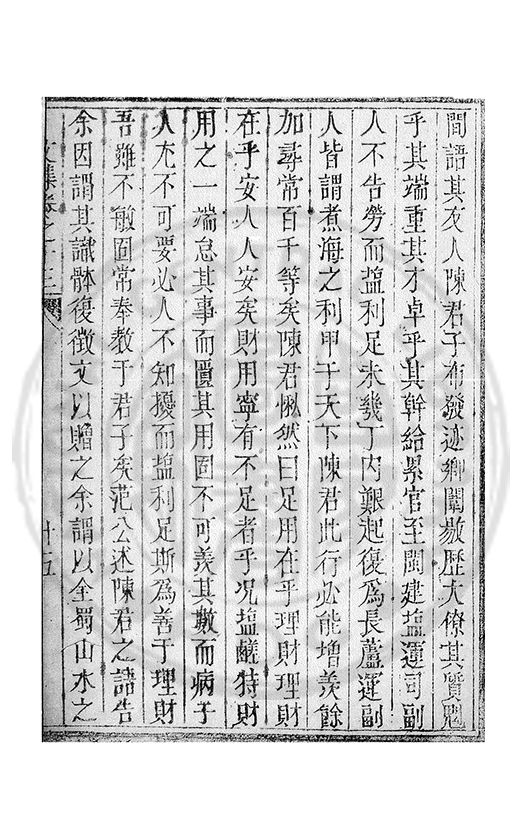 間語其友人陳君子布發迹鄉闈敭歷大僚其質魁
乎其端重其才卓乎其幹給累官至閩建塩運司副
人不告勞而塩利足未幾丁内艱起復爲長蘆運副
人皆謂煮海之利甲于天下陳君此行必能增羨餘
加尋常百千等矣陳君愀然曰足用在乎理財理財
在乎安人人安矣財用寧有不足者乎况塩鹾特財
用之一端怠其事而匱其用固不可羨其數而病于
人尤不可要必人不知擾而塩利足斯爲善于理財
吾雖不敏固常奉教于君子矣范公述陳君之語告
余因謂其識骵復徵文以贈之余謂以全蜀山水之
文集卷之十三
十五